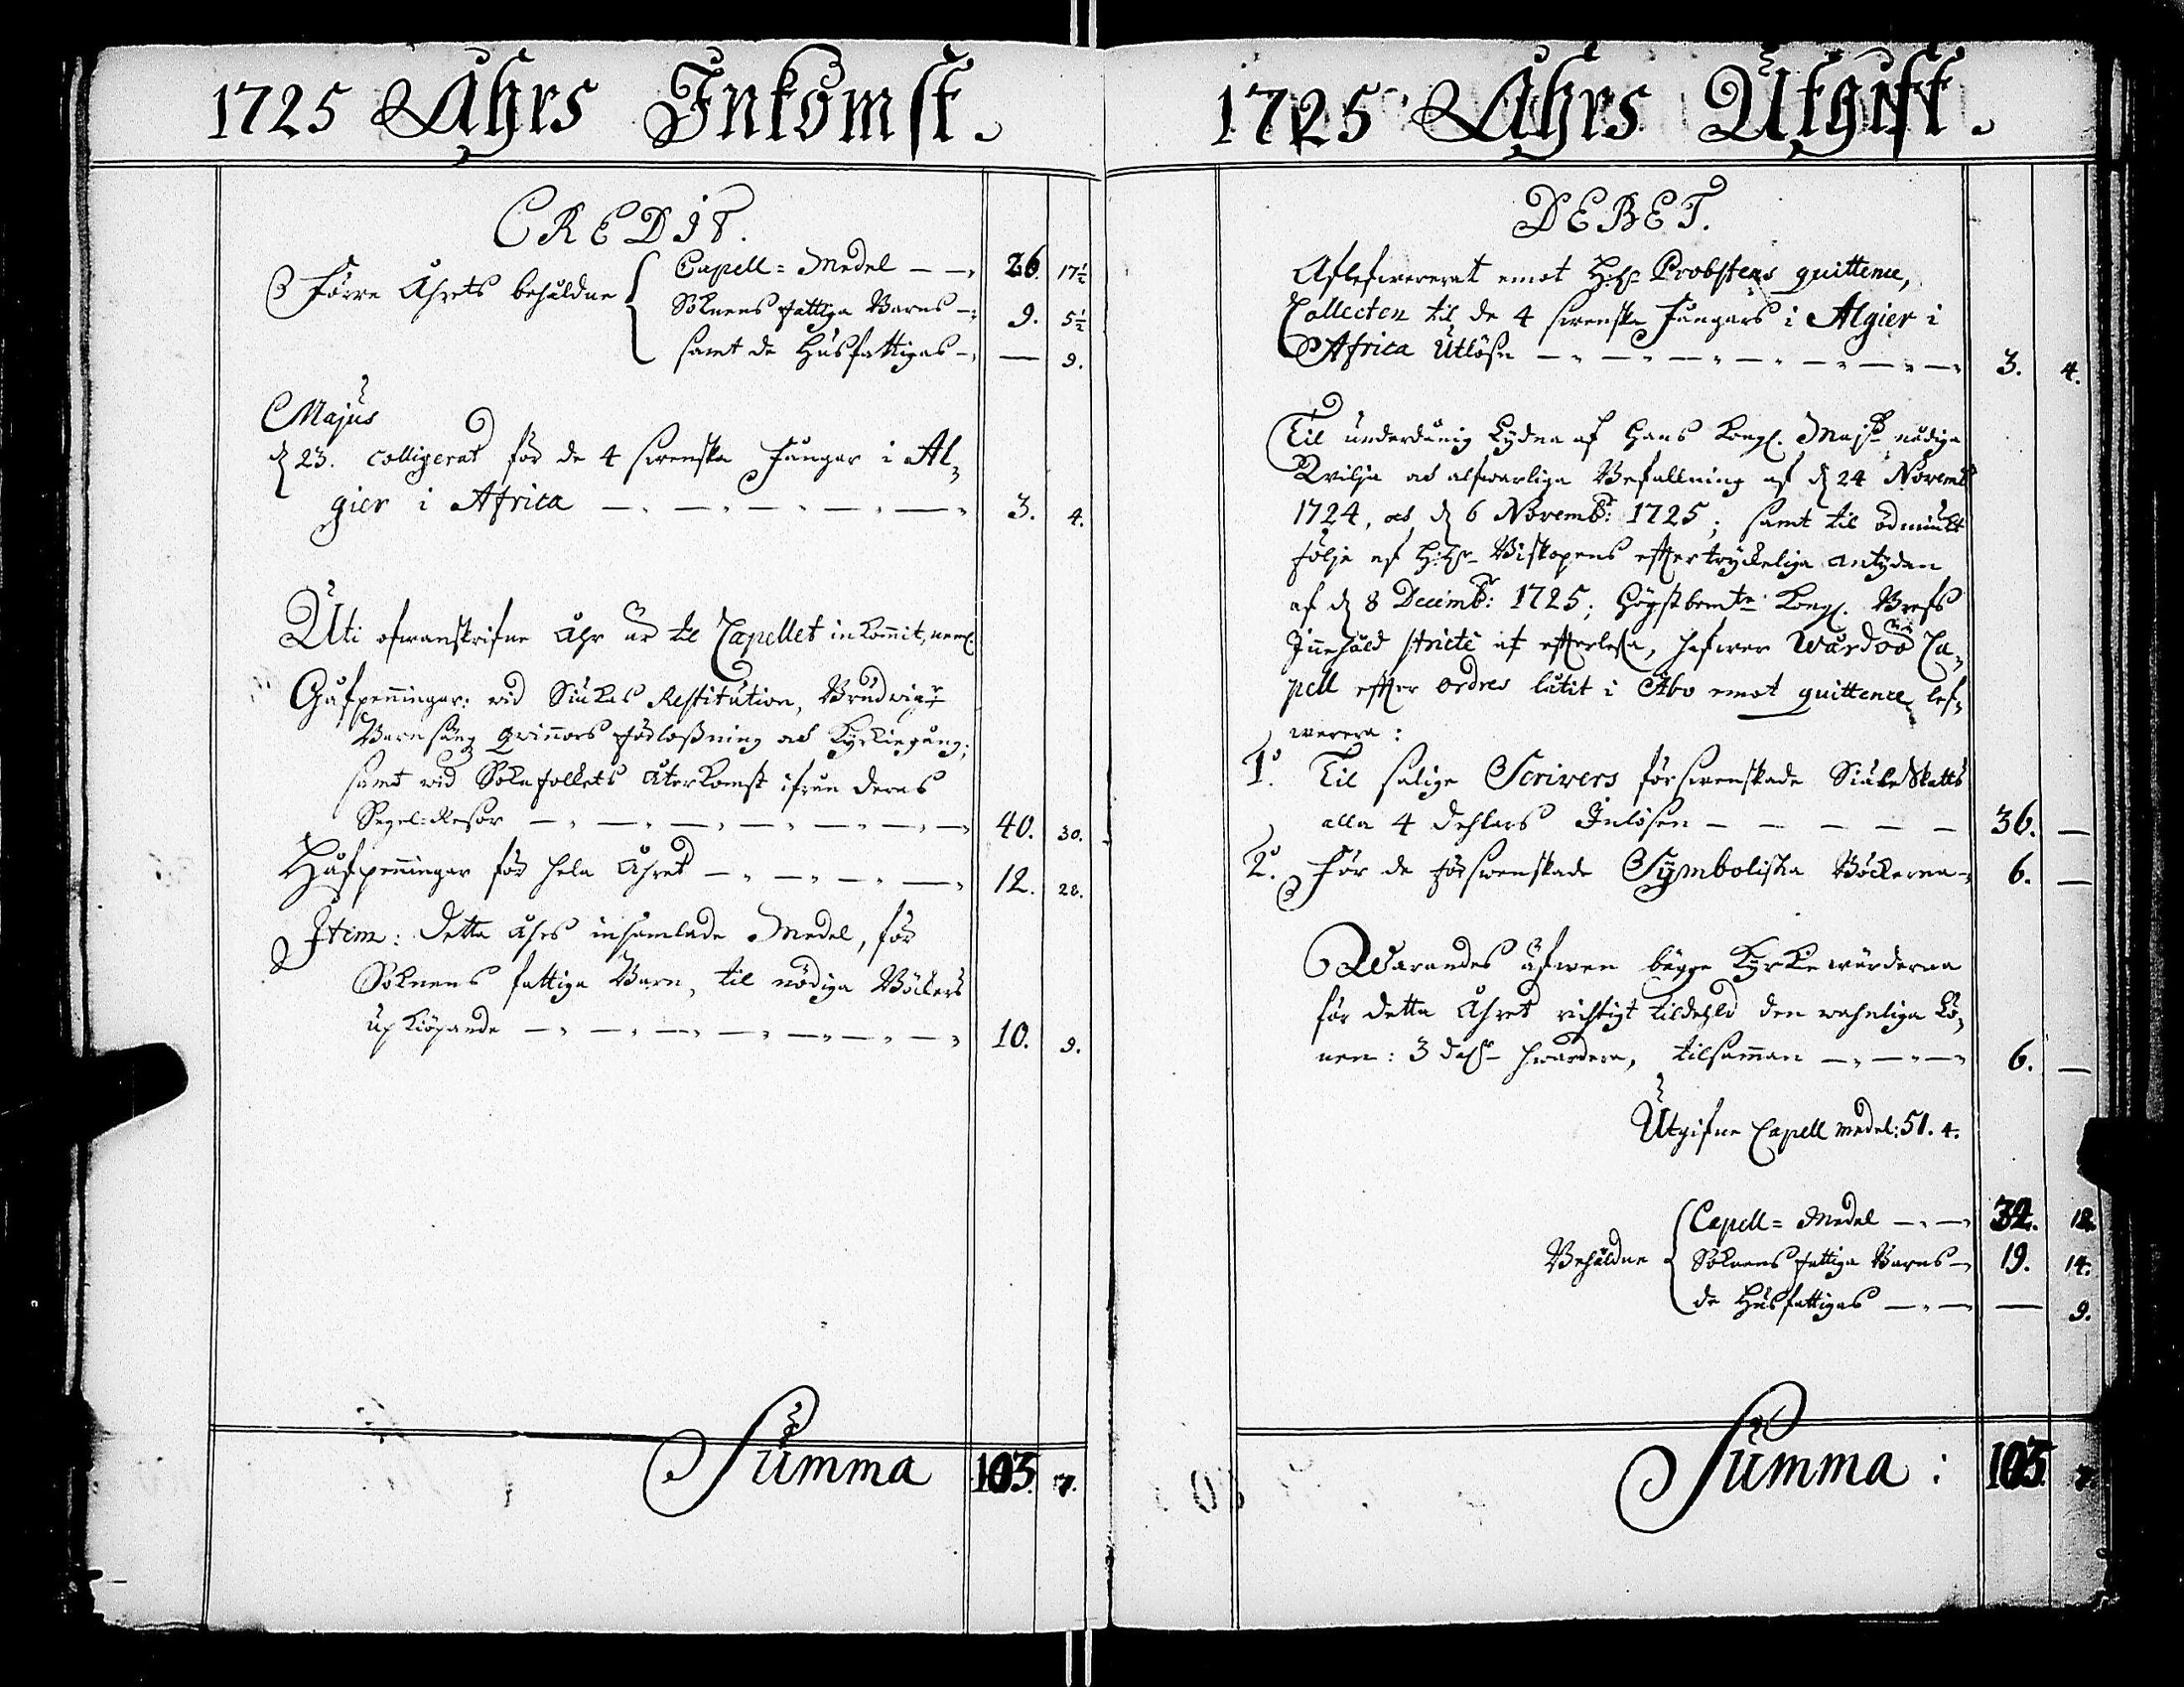 1725 Åhrs Inkomst.
CREDIT.
Förre Åhrets behåldne
Capell=Medel — —, 26. 17½
Soknens fattiga Barns —, 9. 5½
samt de Husfattigas —, — 9.
Majus
d 23. colligerat för de 4 swenska Fångar i Al,
gier i Africa — , — , — , — , — , 3. 4.
Uti ofwanskrifne åhr är til Capellet inkommit, neml.
Gåfpenningar: wid Siukas Restitution, Brudwigr
Barnsäng qwinnors förlossning och Kyrkiegång;
samt wid Soknfolkets återkomst ifrån deras
Segel=Resor — , — , — , — , — , — , — 40. 30.
Håfpenningar för hela Åhret — , — , — , — , 12. 28.
Item: detta åhrs insamlade Medel, för
Soknens fattiga Barn, til nödiga Böckers
upkiöpande — , — , — , — , — , — , — , 10. 9.
Summa 103. 7.
1725 Åhrs Utgift.
DEBET.
Aflefwererat emot H:Hr Probstens quittence,
Collecten til de 4 swenska Fångars i Algier i
Africa Utlösn — , — , — , — , — , — , — , 3. 4.
Til underdånig Lydna af Hans Kongl. Majts nådiga
Wilja och alfwarliga Befallning af d 24 Novemb
1724, och d 6 Novembr: 1725; samt til ödmiukt
följe af H:Hr Biskopens eftertryckeliga antydan
af d 8 Decembr: 1725; Högstbemte Kongl. Brefs
Innehåld stricte at efterlefva, hafwer Wårdöö Ca,
pell efter ordres låtit i Åbo emot quittence lef,
werera:
1o. Til salige Scrivers förswenskade Siäle Skatts
alla 4 dehlars Inlösen — — — — — 36. —
2o. För de förswenskade Symboliska Böckerna —, 6. —
Warandes äfwen bägge Kyrkiewärderna
för detta Åhret richtigt tildehld den wahnliga Lö,
nen: 3 dahlr hwardera, tilsamman — , — , — 6. —
Utgifne Capell medel: 51. 4.
Behåldne
Capell=Medel — , — 32. 12.
Soknens fattiga Barns —, 19. 14.
de Husfattigas — , — — 9.
Summa: 103. 7.